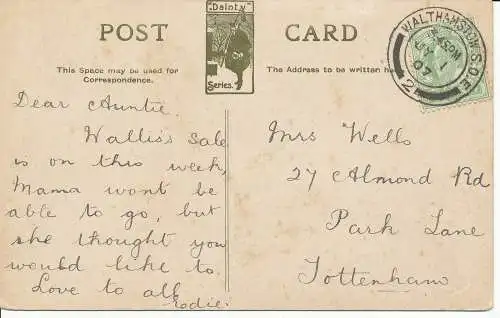 POST CARD
"Dainty"
Series.
This Space may be used for
Correspondence.
The Address to be written
WALTHAMSTOW. S.O.E.
07
2
Dear Auntie.
Wallis's sale
is on this week,
Mama wont be
able to go, but
she thought you
would like to.
Love to all
Mrs Wells
27 Almond Rd
Park Lane
Tottenham